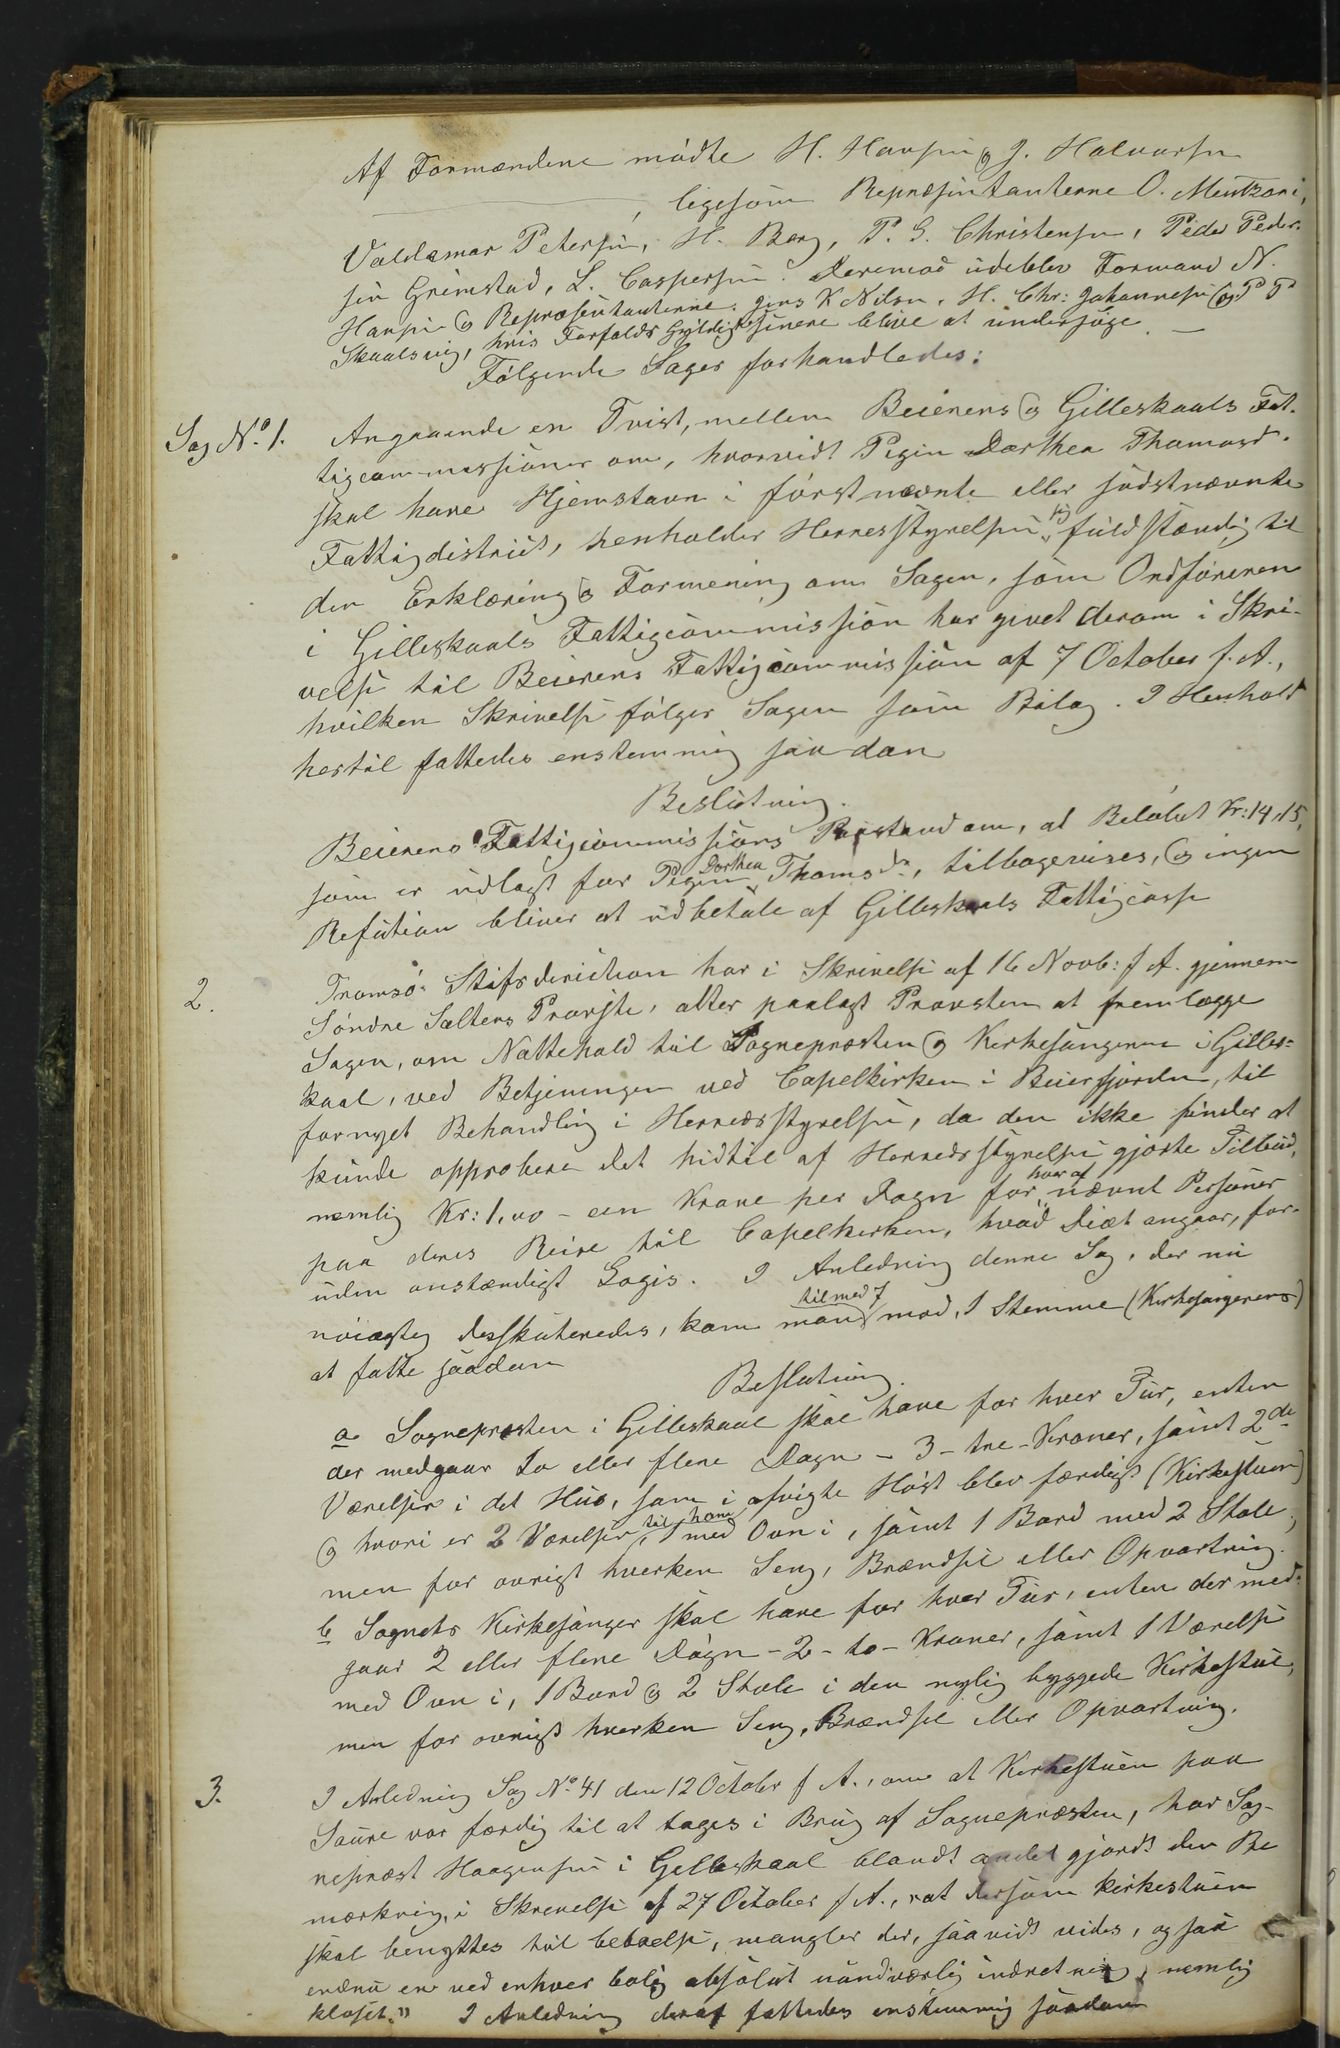 Af Formændene mödte H. Hansen og J. Halvorsen
, ligesom Repræsentanterne O. Mentzoni,
Valdemar Petersen, H. Berg, P. G. Christensen, Peder Peder-
sen Grimstad, L. Caspersen. Derimod udeblev Formand N.
Hansen og Repræsentanterne Jens K Nilsen, H. Chr: Johannesen og P P
Skaalsvig, hvis Forfalds Gyldighed senere blive at undersöge. —
Fölgende Sager forhandledes:
Sag No. 1. Angaaende en Tvist, mellem Beierens og Gilleskaals Fat-
tigcommissioner om, hvorvidt Pigen Dorthea Thomasd.
skal have Hjemstavn i förstnævnte eller sidstnævnte
Fattigdistrict, henholder Herredsstyrelsen sig fuldstændig til
den Erklæring og Formening om Sagen, som Ordföreren
i Gilleskaals Fattigcommission har givet derom i Skri-
velse til Beierens Fattigcommission af 7 October f. A.,
hvilken Skrivelse fölger Sagen som Bilag. I Henhold
hertil fattedes enstemmig saadan
Beslutning.
Beierens Fattigcommissions Paastand om, at Belöbet Kr: 14,15,
som er udlagt for Pigen Dorthea Thomsdr, tilbagevises, og ingen
Refution bliver at udbetale af Gilleskaals Fattigcasse
2. Tromsö Stifsdirection har i Skrivelse af 16 Novb: f A. gjennem
Söndre Saltens Provste, atter paalagt Provsten at fremlægge
Sagen, om Nattehold til Sognepræsten og Kirkesangeren i Gilles-
kaal, ved Betjeningen ved Capelkirken i Beierfjorden, til
fornyet Behandling i Herredsstyrelsen, da den ikke finder at
kunde approbere det hidtil af Herredsstyrelsen gjorte Tilbud,
nemlig Kr: 1,00 - een Krone per Dogn for hver af nævnt Personer
paa deres Reise til Capelkirken, hvad Diæt angaar, for-
uden anstændigt Logis. I Anledning denne Sag, der nu
nöiagtig desskuteredes, kom man til med 7 mod 1 Stemme (Kirkesangerens)
at fatte saadan
Beslutning.
a Sognepræsten i Gilleskaal skal have for hver Tur, enten
der medgaar to eller flere Dagn - 3 - tre - Kroner, samt 2de
Værelser i det Hus, som i afvigte Höst blev færdigt (Kirkestuen)
og hvori er 2 Værelser, til ham 1 med Ovn i, samt 1 Bord med 2 Stole,
men for ovrigt hverken Seng, Brændsel eller Opvartning.
b Sognets Kirkesanger skal have for hver Tur, enten der med-
gaar 2 eller flere Dögn - 2 - to - Kroner, samt 1 Værelse
med Ovn i, 1 Bord og 2 Stole i den nylig byggede Kirkestue,
men for ovrigt hverken Seng, Brændsel eller Opvartning.
3. I Anledning Sag No. 41 den 12 October f A., om at Kirkestuen paa
Saure var færdig til at tages i Brug af Sognepræsten, har Sog-
nepræst Haagensen i Gilleskaal blandt andet gjordt den Be
mærkning, i Skrivelse af 27 October f A., at dersom kirkestuen
skal benyttes til beboelse, mangler der, saavidt vides, ogsaa
endnu en ved enhver bolig absolut uundværlig indretning, nemlig
kloset." I Anledning deraf fattedes enstemmig saadan